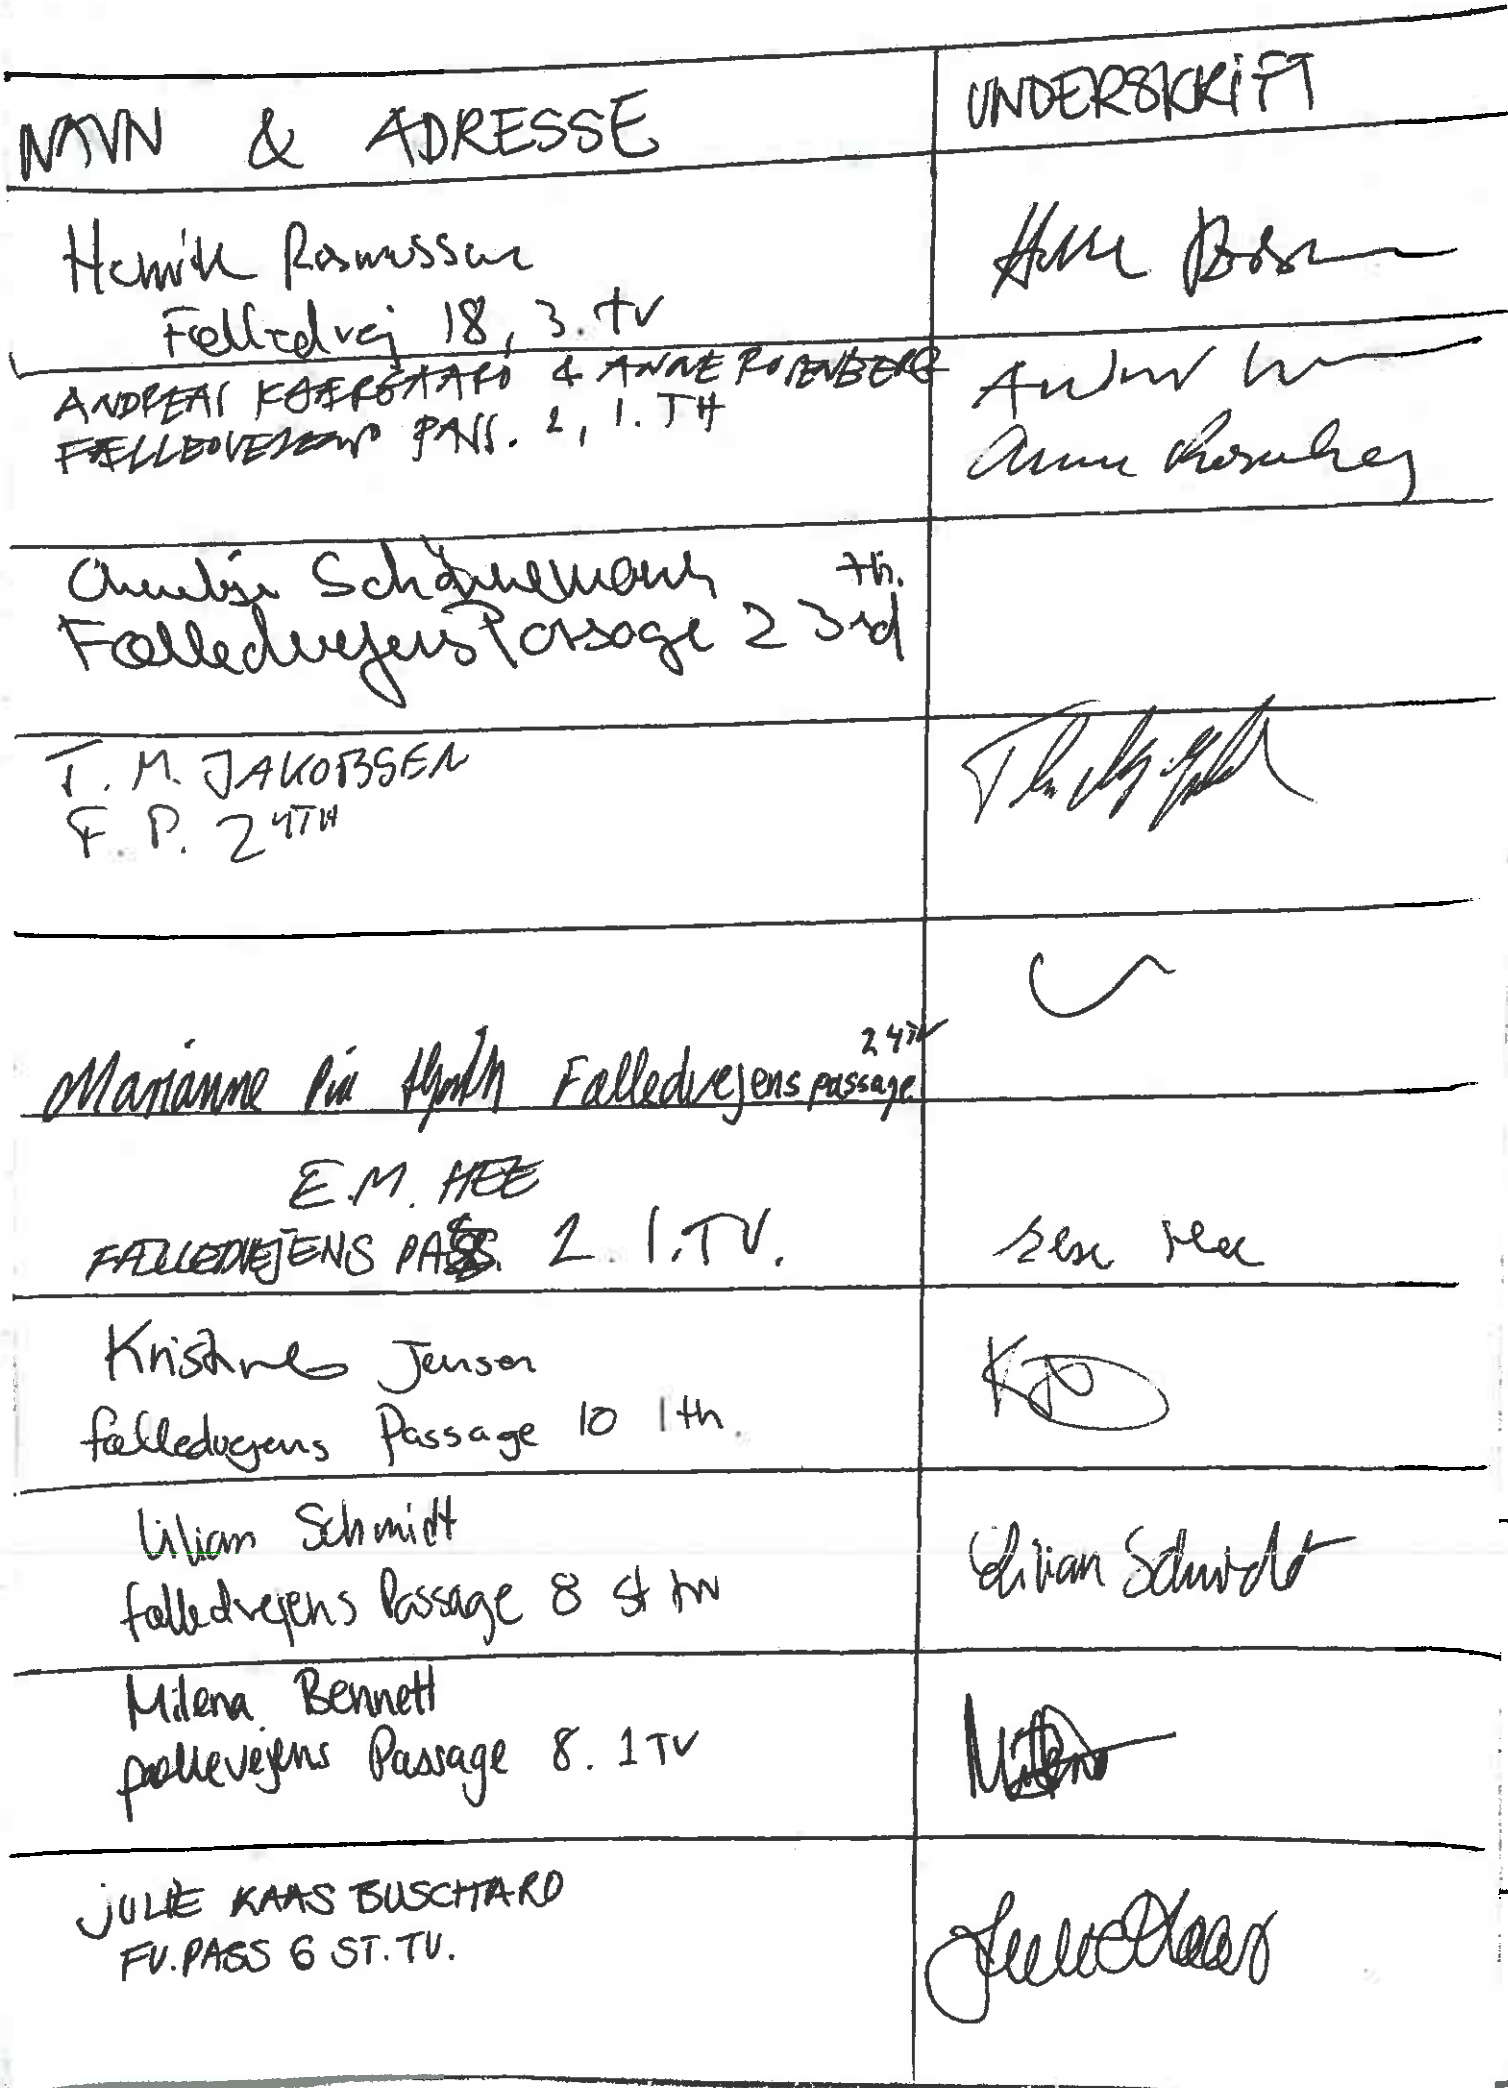 NAVN & ADRESSE UNDERSKRIFT
Henrik Rasmussen
Fælledvej 18, 3. tv
ANDREAS KJÆRGAARD & ANNE ROSENBERG
PASS. 2, 1. TH
Anne Rosenberg
Schönemann th.
Fælledvejens Passage 2 3rd
T. M. JAKOBSEN
F. P. 2 4TH
2 4 TV
Marianne Pia Fælledvejens passage
E.M. HEE
FÆLLEDVEJENS PASS. 2 1. TV.
Hee
Kristine Jensen
fælledvejens Passage 10 1 th.
Lilian Schmidt
fælledvejens Passage 8 st tv
Lilian Schmidt
Milena Bennett
fællevejens Passage 8. 1 TV
JULIE KAAS BUSCHARD
FV. PASS 6 ST. TV.
Julie Kaas